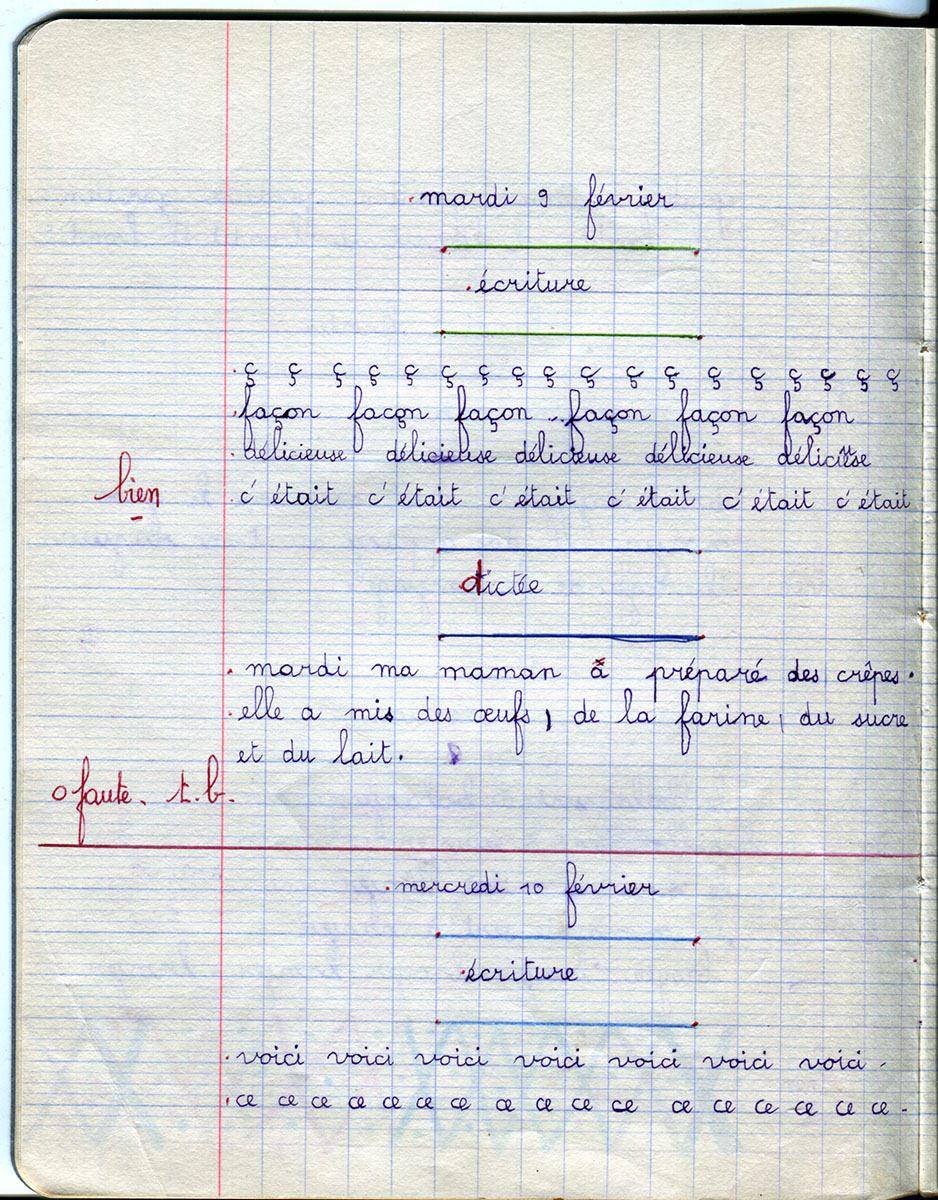 mardi 9 février
écriture
ç ç ç ç ç ç ç ç ç ç ç ç ç ç ç ç ç ç
façon façon façon façon façon façon
délicieuse délicieuse délicieuse délicieuse délicieuse
bien
c'était c'était c'était c'était c'était c'était
dictée
mardi ma maman a préparé des crêpes.
elle a mis des œufs, de la farine, du sucre
et du lait.
0 faute. t.b.
mercredi 10 février
écriture
voici voici voici voici voici voici voici
ce ce ce ce ce ce ce ce ce ce ce ce ce ce ce ce ce